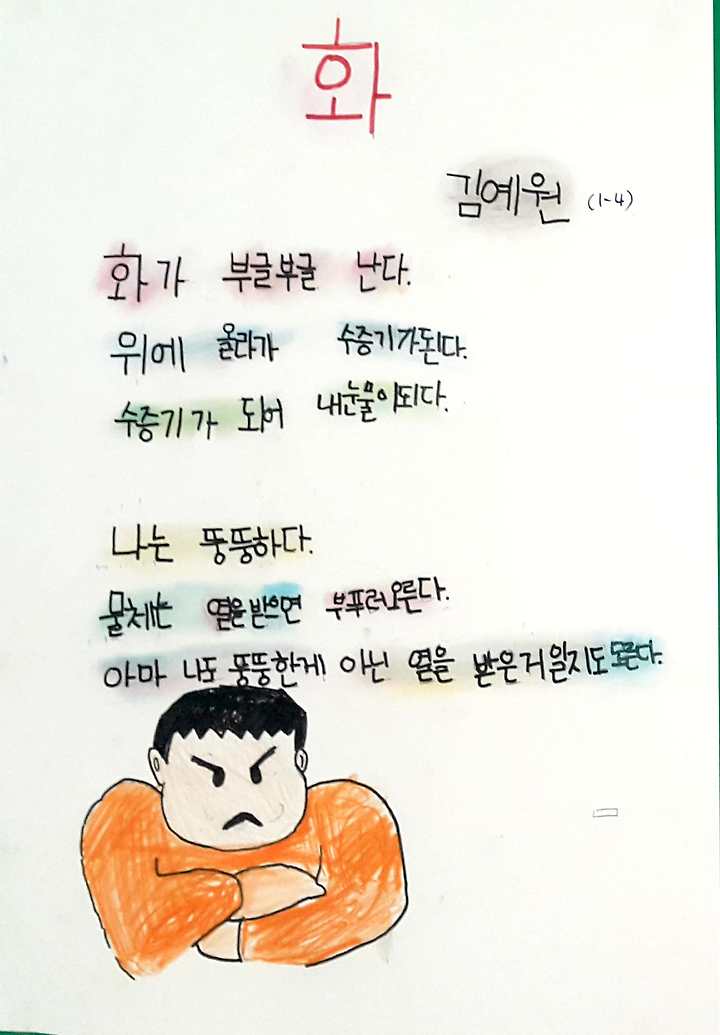 화
김예원 (1-4)
화가 부글부글 난다.
위에 올라가 수증기가된다.
수증기가 되어 내눈물이되다.
나는 뚱뚱하다.
물체는 열을받으면 부푸러오른다.
아마 나도 뚱뚱한게 아닌 열을 받은거일지도모른다.